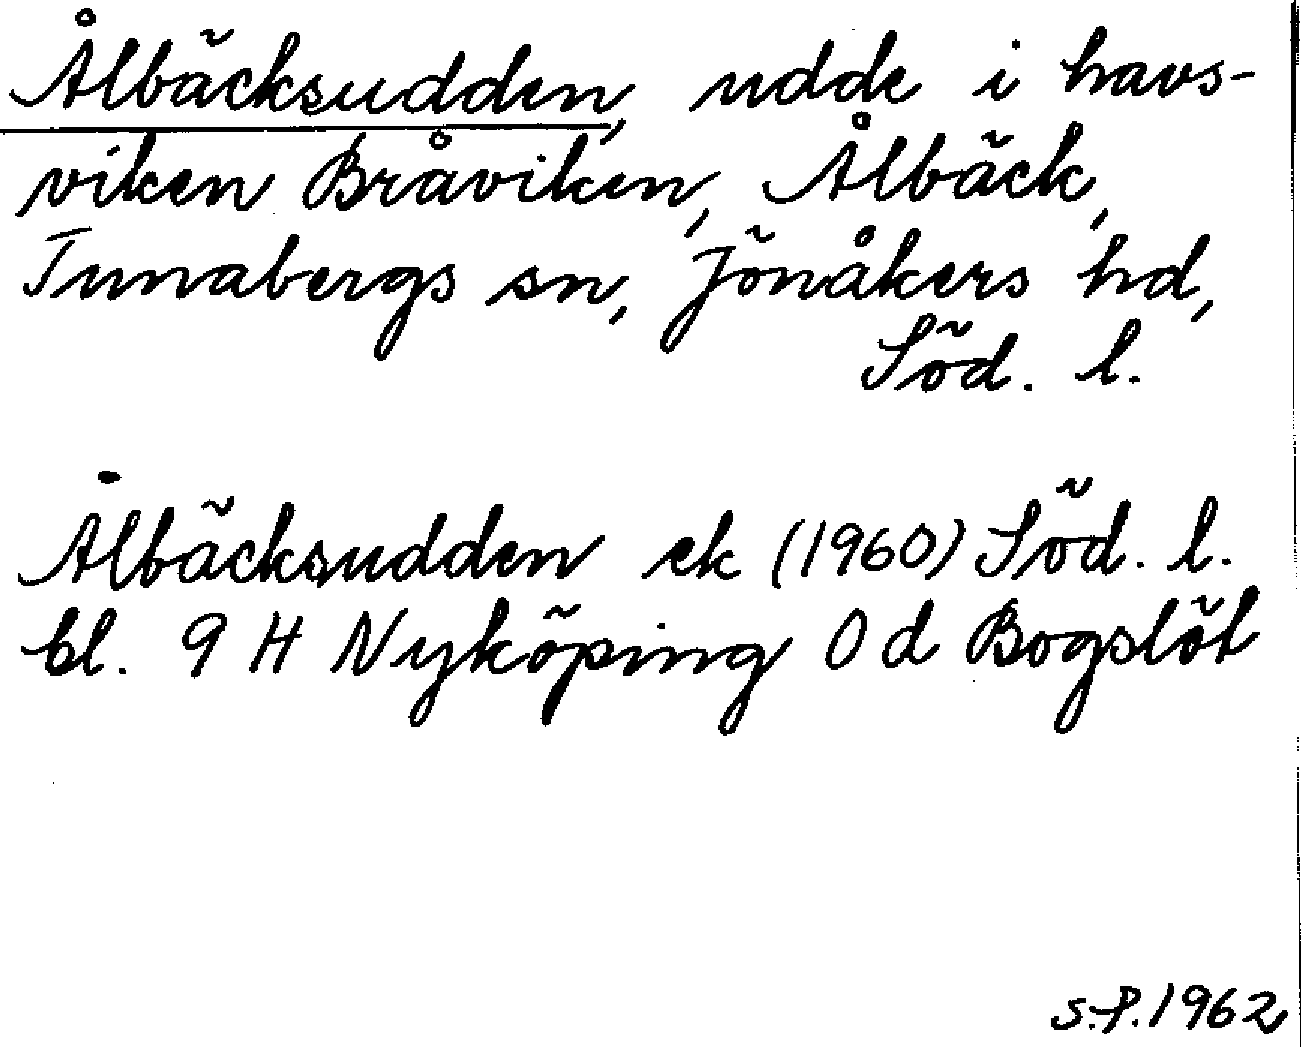 Ålbäcksudden, udde i havs-
viken Bråviken, Ålbäck,
Tunabergs sn, Jönåkers hd,
Söd. l.
Ålbäcksudden ek (1960) Söd. l.
bl. 9 H Nyköping 0 d Bogslöt
S.P. 1962